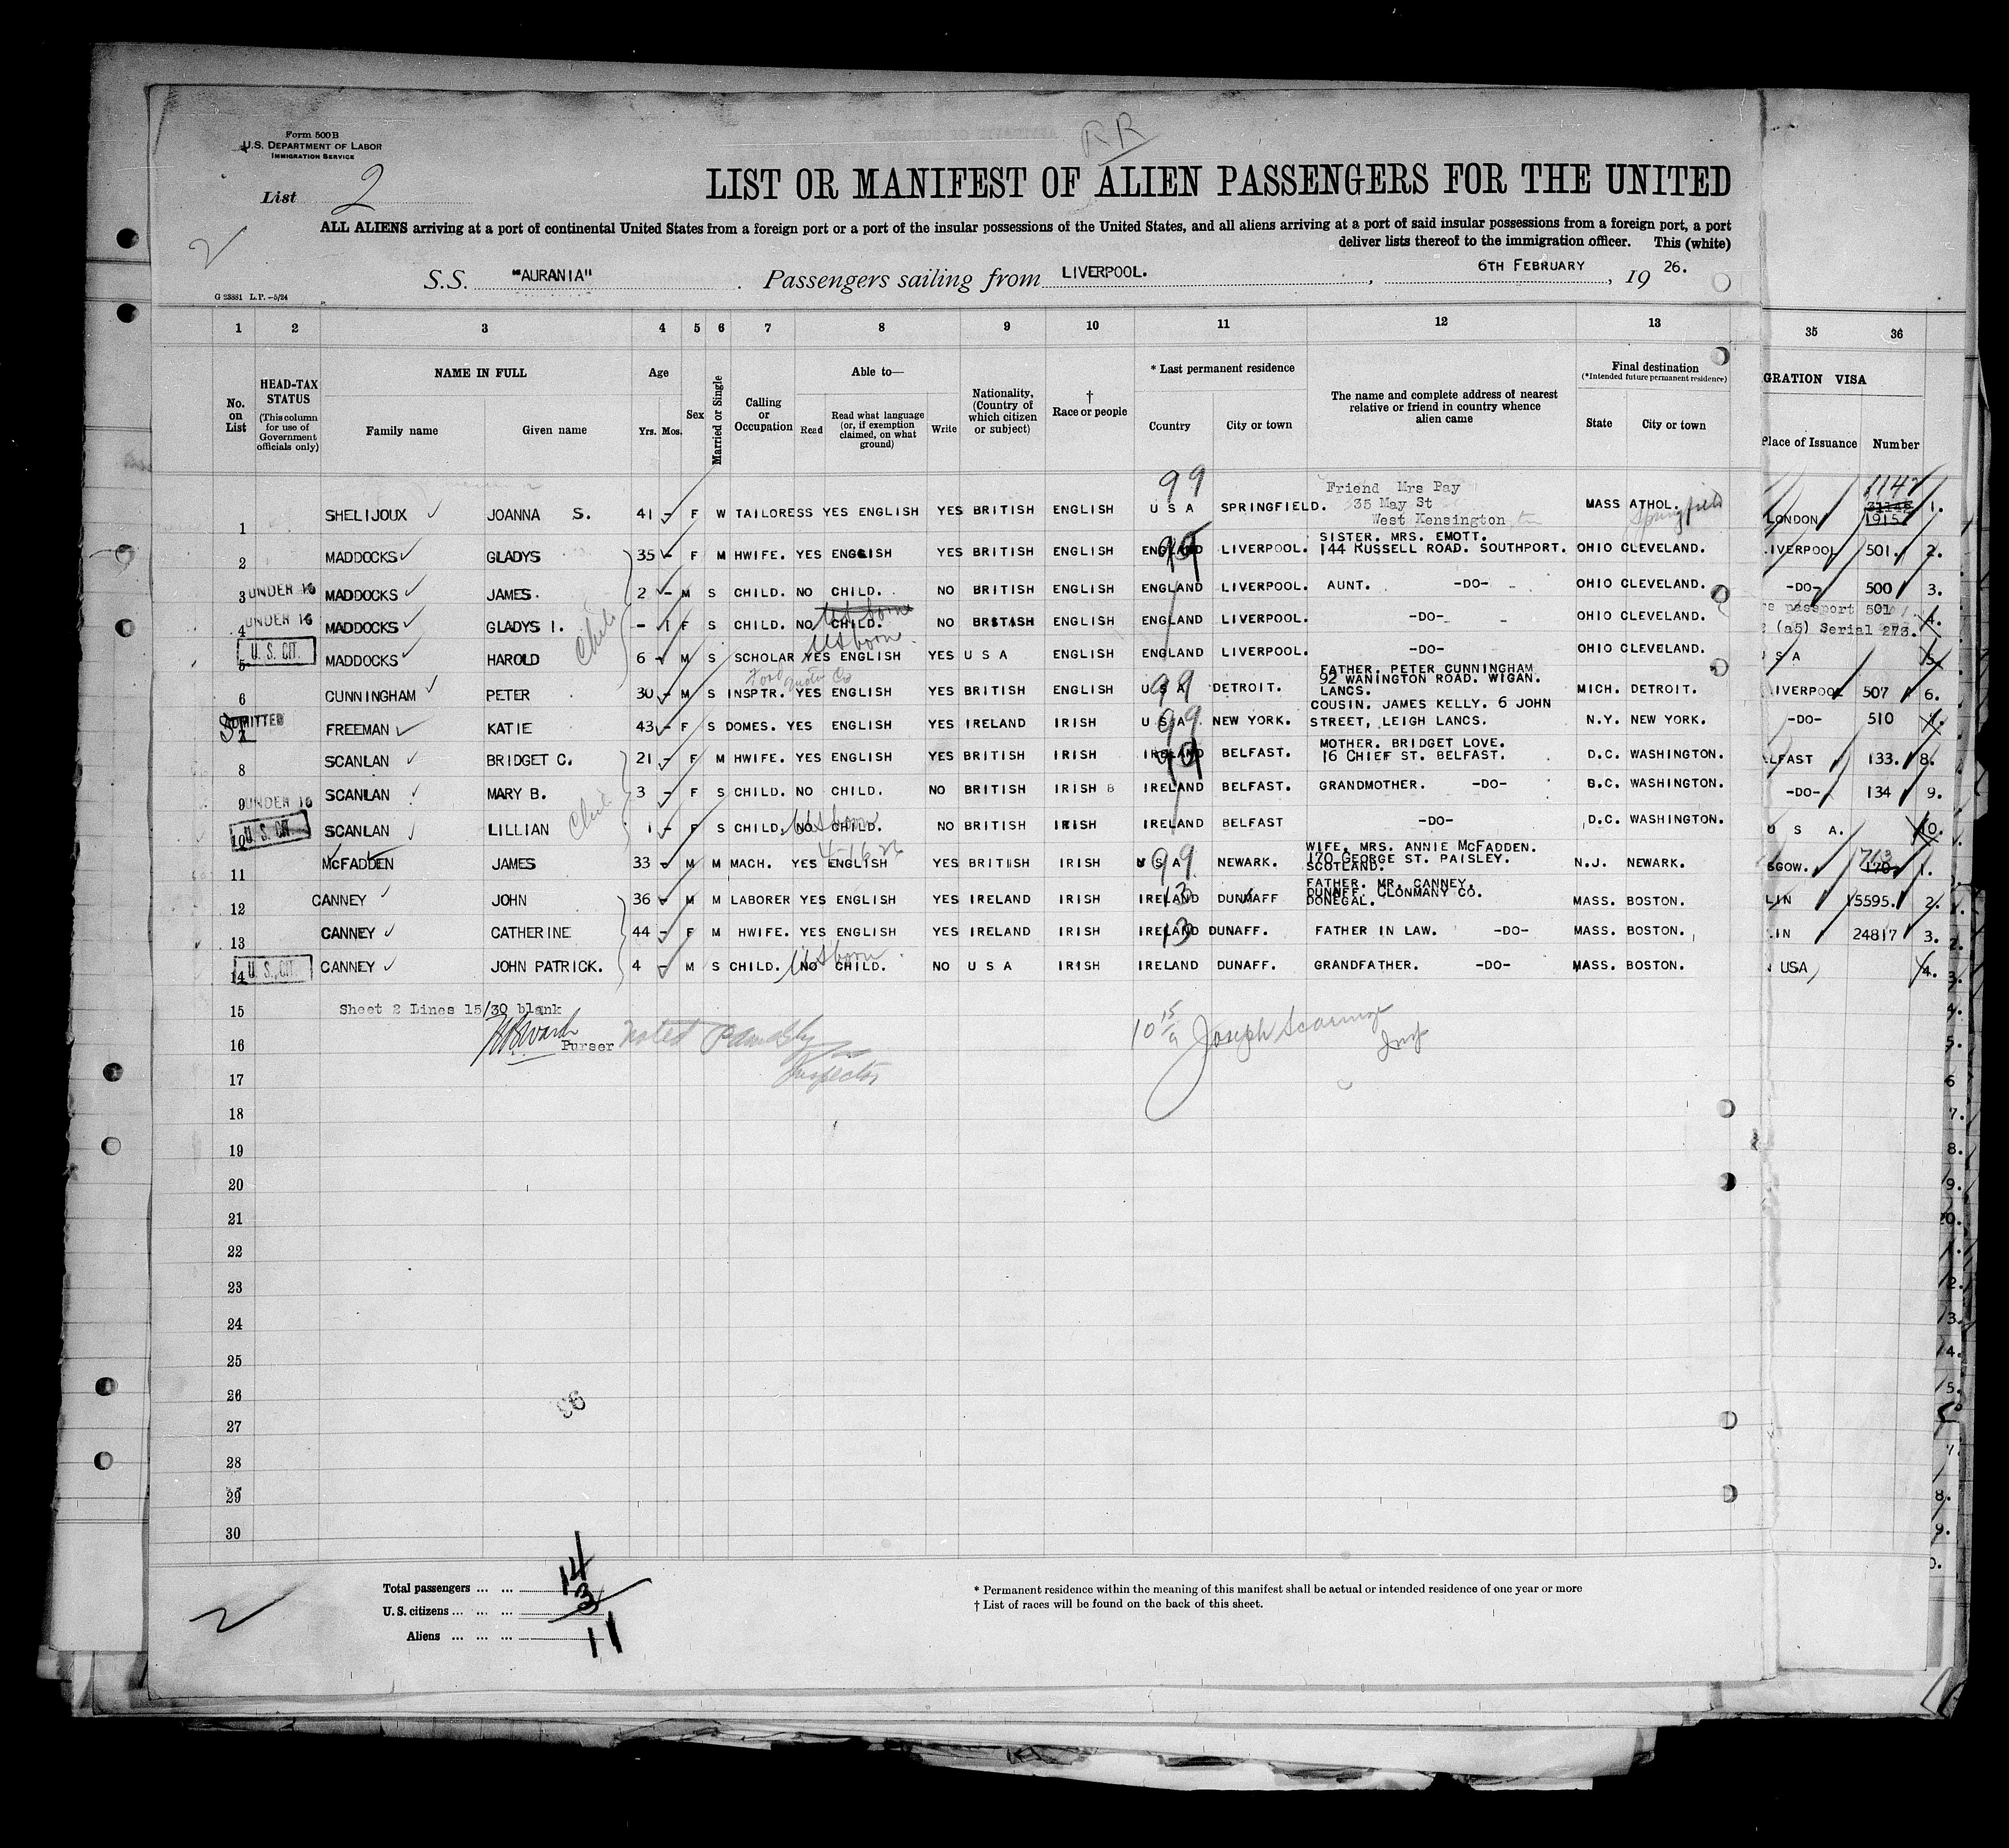 RR
Form 500B
U.S. DEPARTMENT OF LABOR
IMMIGRATION SERVICE
List 2
2
LIST OR MANIFEST OF ALIEN PASSENGERS FOR THE UNITED
ALL ALIENS arriving at a port of continental United States from a foreign port or a port of the insular possessions of the United States, and all aliens arriving at a port of said insular possessions from a foreign port, a port
deliver lists thereof to the immigration officer. This (white)
S.S. "AURANIA" . Passengers sailing from LIVERPOOL. , 6TH FEBRUARY , 19 26.
G 23881 L.P.—5/24
1 2 3 4 5 6 7 8 9 10 11 12 13 35 36
No. on List
HEAD-TAX STATUS (This column for use of Government officials only)
NAME IN FULL
Family name Given name
Age
Yrs. Mos.
Sex
Married or Single
Calling or Occupation
Able to—
Read
Read what language (or, if exemption claimed, on what ground)
Write
Nationality, (Country of which citizen or subject)
† Race or people
* Last permanent residence
Country City or town
The name and complete address of nearest relative or friend in country whence alien came
Final destination
(*Intended future permanent residence)
State City or town
GRATION VISA
Place of Issuance Number
1 SHELIJOUX JOANNA S. 41 - F W TAILORESS YES ENGLISH YES BRITISH ENGLISH 99 U S A SPRINGFIELD. Friend Mrs Pay 35 May St West Kensington MASS ATHOL. Springfield LONDON 1915 1.
2 MADDOCKS GLADYS 35 - F M HWIFE. YES ENGLISH YES BRITISH ENGLISH ENGLAND LIVERPOOL. SISTER. MRS. EMOTT. 144 RUSSELL ROAD. SOUTHPORT. OHIO CLEVELAND. LIVERPOOL 501. 2.
3 UNDER 16 MADDOCKS JAMES. 2 - M S CHILD. NO CHILD. NO BRITISH ENGLISH ENGLAND LIVERPOOL. AUNT. -DO- OHIO CLEVELAND. -DO- 500 3.
4 UNDER 16 MADDOCKS GLADYS I. - 1 F S CHILD. NO CHILD. NO BRSTASH ENGLISH ENGLAND LIVERPOOL. -DO- OHIO CLEVELAND. passport 501 (a5) Serial 273. 4.
5 U.S. CIT. MADDOCKS HAROLD 6 - M S SCHOLAR YES ENGLISH US born YES U S A ENGLISH ENGLAND LIVERPOOL. -DO- OHIO CLEVELAND. S A 5.
6 CUNNINGHAM PETER 30 - M S INSPTR. YES ENGLISH YES BRITISH ENGLISH 99 U S A DETROIT. FATHER. PETER CUNNINGHAM 92 WANINGTON ROAD. WIGAN. LANCS. MICH. DETROIT. LIVERPOOL 507 6.
ADMITTED FREEMAN KATIE 43 - F S DOMES. YES ENGLISH YES IRELAND IRISH 99 U S A NEW YORK. COUSIN. JAMES KELLY. 6 JOHN STREET, LEIGH LANCS. N.Y. NEW YORK. -DO- 510
8 SCANLAN BRIDGET C. 21 - F M HWIFE. YES ENGLISH YES BRITISH IRISH IRELAND BELFAST. MOTHER. BRIDGET LOVE. 16 CHIEF ST. BELFAST. D.C. WASHINGTON. LFAST 133. 8.
9 UNDER 16 SCANLAN MARY B. 3 - F S CHILD. NO CHILD. NO BRITISH IRISH B IRELAND BELFAST. GRANDMOTHER. -DO- B.C. WASHINGTON. -DO- 134 9.
10 U.S. CIT. SCANLAN LILLIAN 1 - F S CHILD. NO CHILD. US born NO BRITISH IRISH IRELAND BELFAST -DO- D.C. WASHINGTON. U S A. 10.
11 McFADDEN JAMES 33 - M M MACH. YES ENGLISH YES BRITISH IRISH 99 U S A NEWARK. WIFE. MRS. ANNIE McFADDEN. 170 GEORGE ST. PAISLEY. SCOTLAND. N.J. NEWARK. SGOW. 713 170 1.
12 CANNEY JOHN 36 - M M LABORER YES ENGLISH YES IRELAND IRISH 13 IRELAND DUNAFF FATHER. MR. CANNEY. DUNAFF. CLONMANY CO. DONEGAL. MASS. BOSTON. LIN 15595. 2.
13 CANNEY CATHERINE 44 - F M HWIFE. YES ENGLISH YES IRELAND IRISH 13 IRELAND DUNAFF. FATHER IN LAW. -DO- MASS. BOSTON. LIN 24817 3.
14 U.S. CIT. CANNEY JOHN PATRICK. 4 - M S CHILD. NO CHILD. US born NO U S A IRISH IRELAND DUNAFF. GRANDFATHER. -DO- MASS. BOSTON. USA 4.
15 Sheet 2 Lines 15/30 blank
16 Purser noted
Inspector
Joseph
17
18
19
20
21
22
23
24
25
26
27
28
29
30
Total passengers ... ... 14
U.S. citizens ... ... ... 3
Aliens ... ... ... 11
2
* Permanent residence within the meaning of this manifest shall be actual or intended residence of one year or more
† List of races will be found on the back of this sheet.